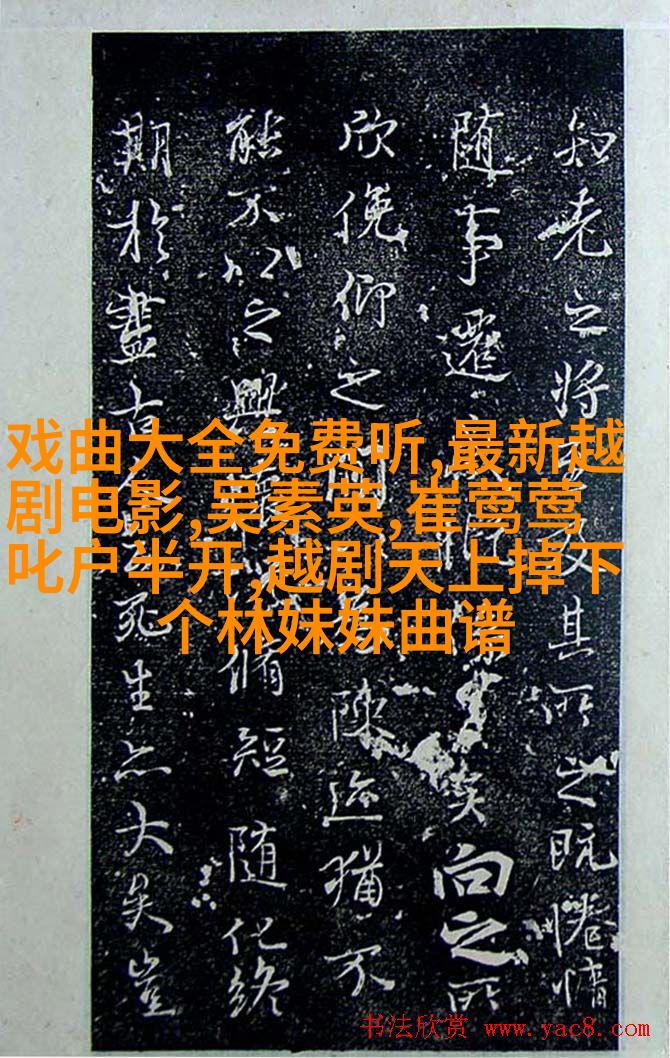 知老之將及其所之既惓情
随事遷係之矣向之所
欣俛仰之間陳迹猶不
能不以之興脩短随化終
期於盡古死生亦大矣豈
戏曲大全免费听,最新越
剧电影,吴素英,崔莺莺
叱户半开,越剧天上掉下
个林妹妹曲谱
书法欣赏 www.yac8.com